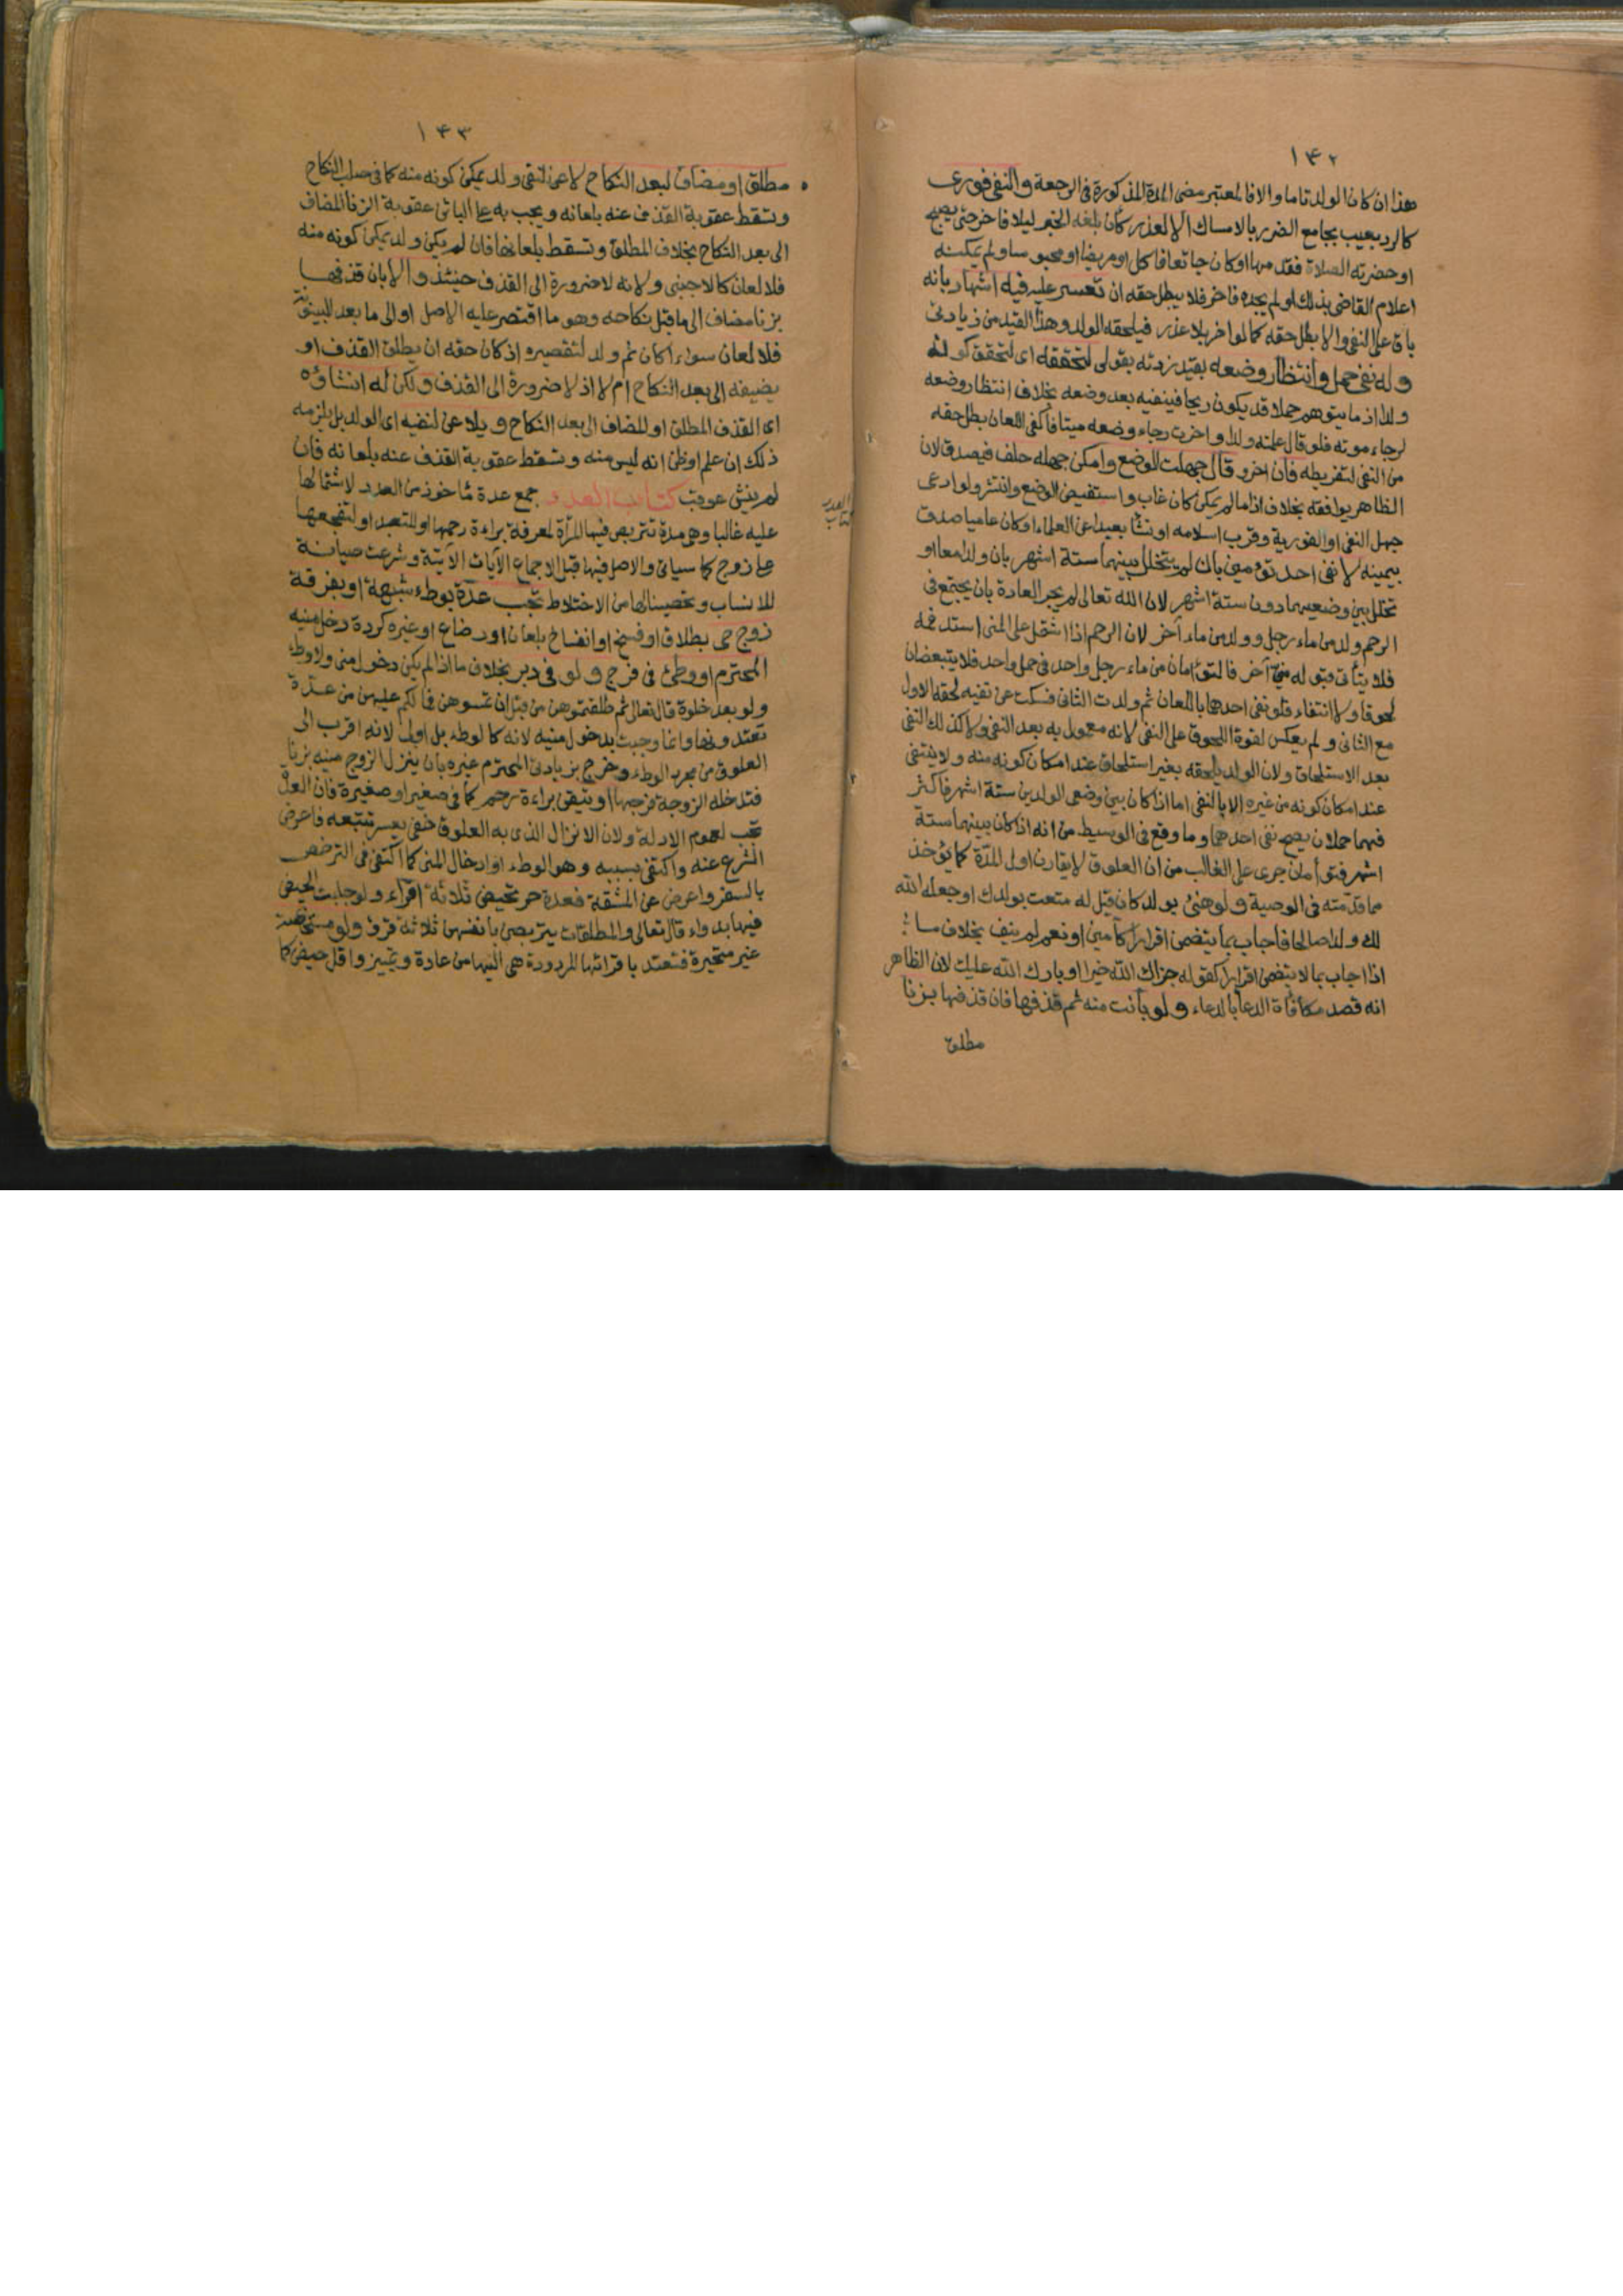 ١٤٢
هذا ان كان الولد تاما والا فالمعتبر مضى المدة المذكورة في الرجعة والنفى فورى
كالرد بعيب بجامع الضرر بالامساك الا لعذر كأن بلغه الخبر ليلا فاخر حتى يصبح
او حضرته الصلاة فقدمها او كان جائعا فاكل او مريضا او محبوسا ولم يمكنه
اعلام القاضى بذلك او لم يجده فاخر فلا يبطل حقه ان تعسر عليه فيه اشهاد بانه
باق على النفى والا بطل حقه كما لو اخر بلا عذر فيلحقه الولد وهذا القيد من زيادتى
وله نفى حمل وانتظار وضعه بقيد زدته بقولى لتحققه اى لتحقق كونه
ولدا اذ ما يتوهم حملا قد يكون ريحا فينفيه بعد وضعه بخلاف انتظار وضعه
لرجاء موته فلو قال علمته ولدا واخرت رجاء وضعه ميتا فاكفى اللعان بطل حقه
من النفى لتفريطه فان اخر وقال جهلت الوضع وامكن جهله حلف فيصدق لان
الظاهر يوافقه بخلاف اذا ما لم يمكن كان غاب واستفيض الوضع وانتشر ولو ادعى
جهل النفى او الفورية وقرب اسلامه او نشأ بعيدا عن العلماء او كان عاميا صدق
بيمينه لا نفى احد توءمين بان لم يتخلل بينهما ستة اشهر بان ولدا معا او
تخلل بين وضعيهما دون ستة اشهر لان الله تعالى لم يجر العادة بان يجتمع فى
الرحم ولد من ماء رجل وولد من ماء آخر لان الرحم اذا اشتمل على المنى استد فمه
فلا يتأتى قبوله منى آخر فالتوءمان من ماء رجل واحد فى حمل واحد فلا يتبعضان
لحوقا ولا انتفاء فلو نفى احدهما باللعان ثم ولدت الثانى فسكت عن نفيه لحقه الاول
مع الثانى ولم يعكس لقوة اللحوق على النفى لانه معمول به بعد النفى ولا كذلك النفى
بعد الاستلحاق ولان الولد يلحقه بغير استلحاق عند امكان كونه منه ولا ينتفى
عند امكان كونه من غيره الا بالنفى اما اذا كان بين وضعى الولدين ستة اشهر فاكثر
فهما حملان يصح نفى احدهما وما وقع فى الوسيط من انه اذا كان بينهما ستة
اشهر فتوءمان جرى على الغالب من ان العلوق لا يقارن اول المدة كما يؤخذ
مما قدمته فى الوصية ولو هنئ بولد كان قيل له متعت بولدك او جعله الله
لك ولدا صالحا فاجاب بما يتضمن اقرارا كآمين او نعم لم ينف بخلاف ما
اذا اجاب بما لا يتضمن اقرارا كقوله جزاك الله خيرا او بارك الله عليك لان الظاهر
انه قصد مكافأة الدعا بالدعاء ولو بانت منه ثم قذفها فان قذفها بزنا
مطلق
١٤٣
مطلق او مضاف لبعد النكاح لاعن لنفى ولد يمكن كونه منه كما فى صلب النكاح
وتسقط عقوبة القذف عنه بلعانه ويجب به على البائن عقوبة الزنا المضاف
الى بعد النكاح بخلاف المطلق وتسقط بلعانها فان لم يكن ولد يمكن كونه منه
فلا لعان كالاجنبى ولانه لا ضرورة الى القذف حينئذ والا بان قذفها
بزنا مضاف الى ما قبل نكاحه وهو ما اقتصر عليه الاصل او الى ما بعد البينونة
فلا لعان سواء اكان ثم ولد لتقصيره اذ كان حقه ان يطلق القذف او
يضيفه الى بعد النكاح ام لا اذ لا ضرورة الى القذف ولكن له انشاؤه
اى القذف المطلق او المضاف الى بعد النكاح ويلاعن لنفيه اى الولد بل يلزمه
ذلك ان علم او ظن انه ليس منه وتسقط عقوبة القذف عنه بلعانه فان
لم ينشئ عوقب كتاب العدد جمع عدة مأخوذ من العدد لاشتمالها
عليه غالبا وهى مدة تتربص فيها المرأة لمعرفة براءة رحمها او للتعبد او لتفجعها
على زوج كما سياتى والاصل فيها قبل الاجماع الآيات الآتية وشرعت صيانة
للانساب وتحصينا لها من الاختلاط تجب عدة بوطء شبهة او بفرقة
زوج حى بطلاق او فسخ او انفساخ بلعان او رضاع او غيره كردة دخل منيه
المحترم او وطئ فى فرج ولو فى دبر بخلاف ما اذا لم يكن دخول منى ولا وطء
ولو بعد خلوة قال تعالى ثم طلقتموهن من قبل ان تمسوهن فما لكم عليهن من عدة
تعتدونها وانما وجبت بدخول منيه لانه كالوطء بل اولى لانه اقرب الى
العلوق من مجرد الوطء وخرج بزيادتى المحترم غيره بان ينزل الزوج منيه بزنا
فتدخله الزوجة فرجها او تيقن براءة رحم كما فى صغير او صغيرة فان العدة
تجب لعموم الادلة ولان الانزال الذى به العلوق خفى يعسر تتبعه فاعرض
الشرع عنه واكتفى بسببه وهو الوطء او ادخال المنى كما اكتفى فى الترخص
بالسفر واعرض عن المشقة فعدة حرة تحيض ثلاثة اقراء ولو جلبت الحيض
فيها بدواء قال تعالى والمطلقات يتربصن بانفسهن ثلاثة قروء ولو مستحاضة
غير متحيرة فتعتد باقرائها المردودة هى اليها من عادة وتمييز واقل حيض كما
كتاب العدد